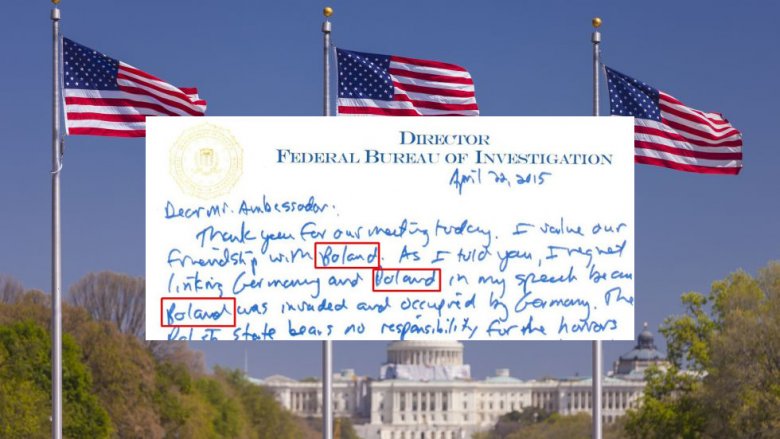 DIRECTOR
FEDERAL BUREAU OF INVESTIGATION
April 22, 2015
Dear Mr. Ambassador:
Thank you for our meeting today. I value our
friendship with Poland. As I told you, I regret
linking Germany and Poland in my speech becau
Poland was invaded and occupied by Germany. The
Polish state bears no responsibility for the horrors